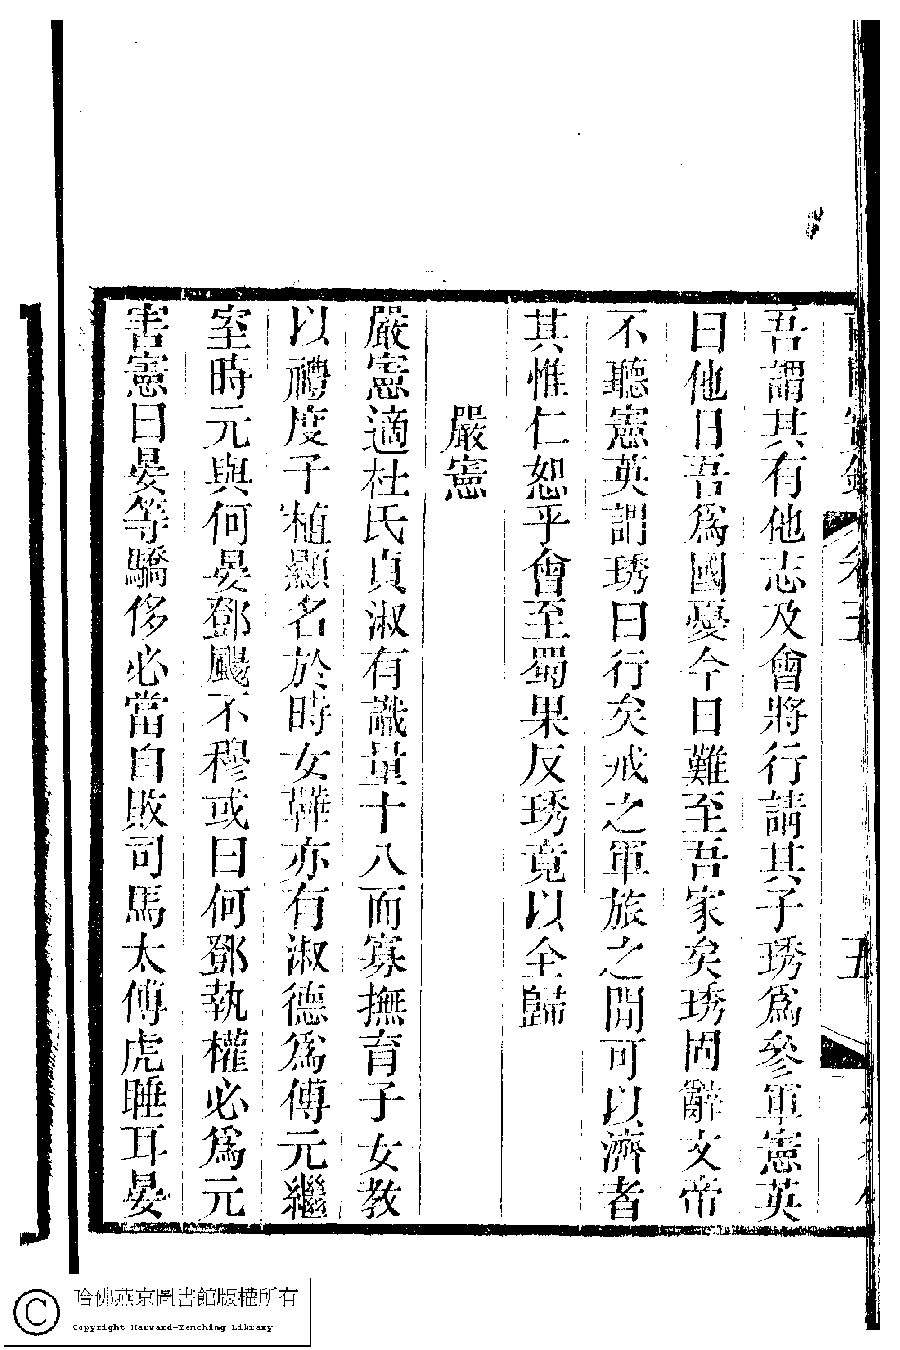 吾謂其有他志及會將行請其子琇為參軍憲英
曰他日吾為國憂今日難至吾家矣琇固辭文帝
不聽憲英謂琇曰行矣戒之軍旅之閒可以濟者
其惟仁恕乎會至蜀果反琇竟以全歸
嚴憲
嚴憲適杜氏貞淑有識量十八而寡撫育子女教
以禮度子植顯名於時女韡亦有淑德為傅元繼
室時元與何晏鄧颺不穆或曰何鄧執權必為元
害憲曰晏等驕侈必當自敗司馬太傅虎睡耳晏
哈佛燕京圖書館版權所有
Copyright Harvard-Yenching Library